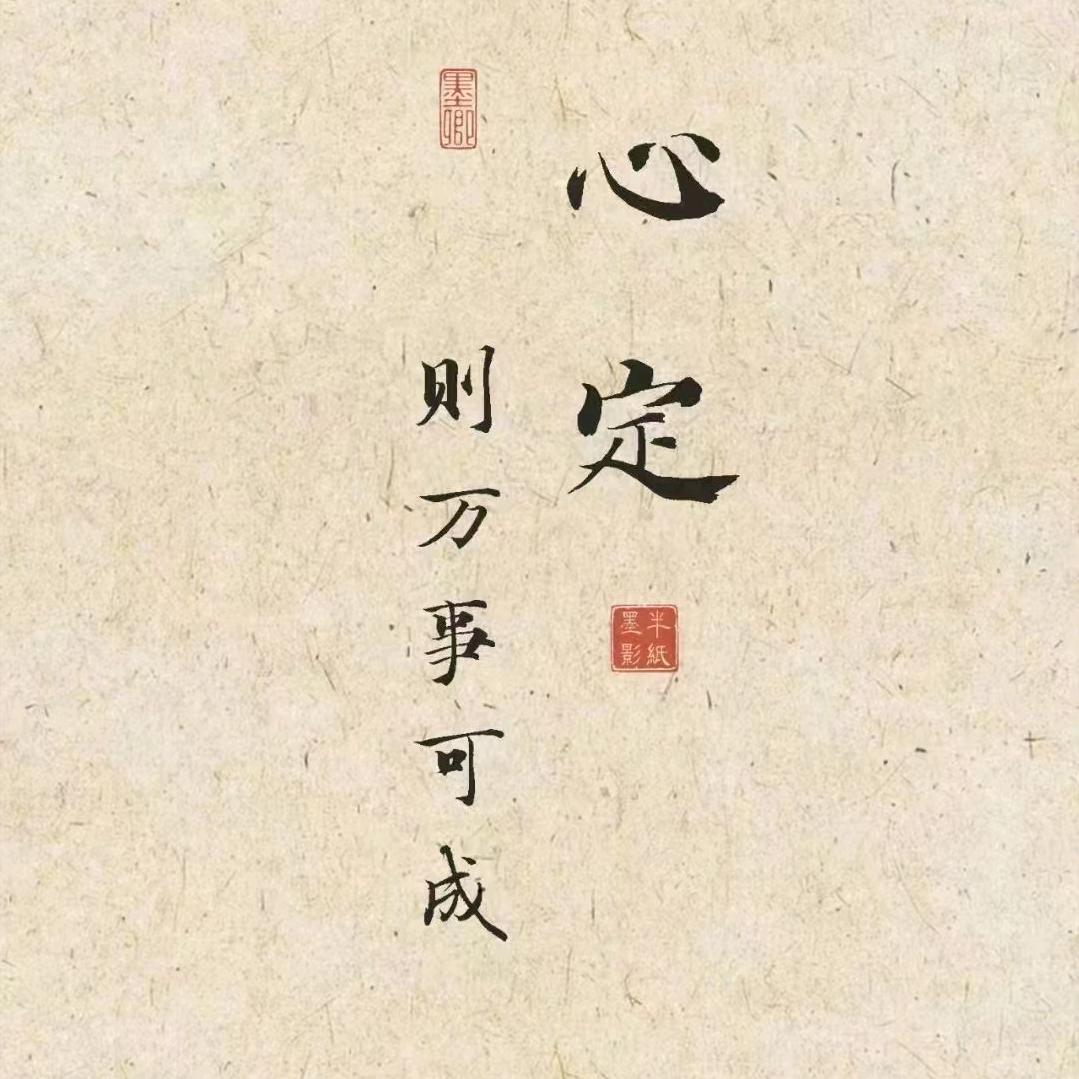 心定
半紙
墨影
则万事可成
墨卿